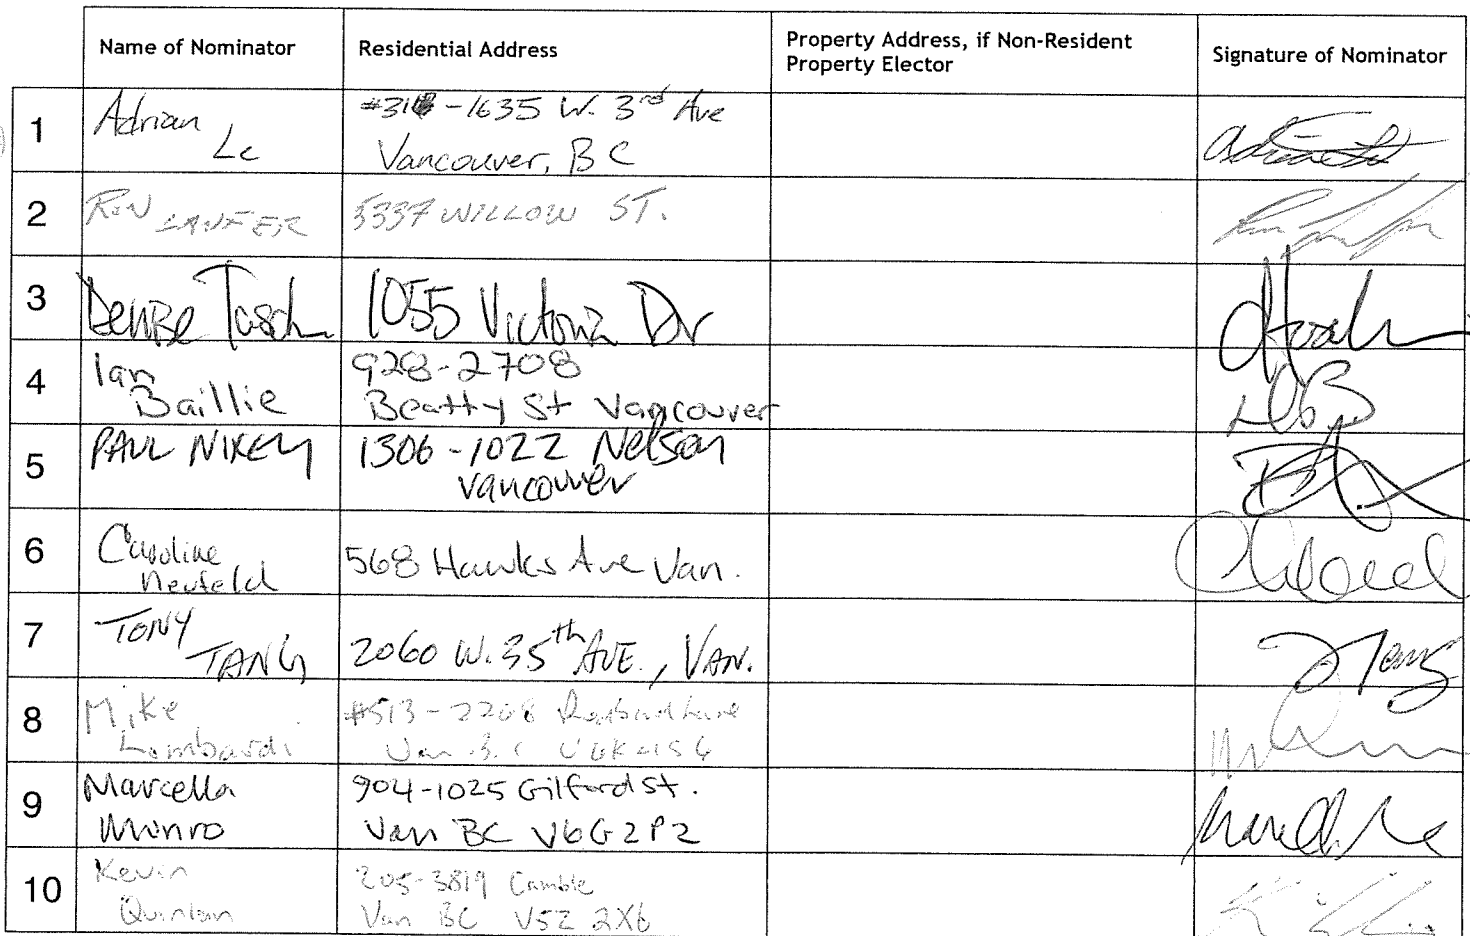 Name of Nominator
Residential Address
Property Address, if Non-Resident
Property Elector
Signature of Nominator
1
Adrian
Le
-1635 W. 3rd Ave
Vancouver, BC
2
RON
LANFER
5337 WILLOW ST.
3
Denise Tasch
1055 Victoria Dr
4
Ian
Baillie
928-2708
Beatty St Vancouver
5
PAUL NIXEY
1306-1022 Nelson
Vancouver
6
Caroline
Neufeld
568 Hawks Ave Van.
7
TONY
TANG
2060 W. 35th AVE., VAN.
8
Mike
Lombardi
#513-2208
Van B.C
9
Marcella
Munro
904-1025 Gilford St.
Van BC V6G2P2
10
Kevin
Quinlan
205-3819 Cambie
Van BC V5Z 2X6